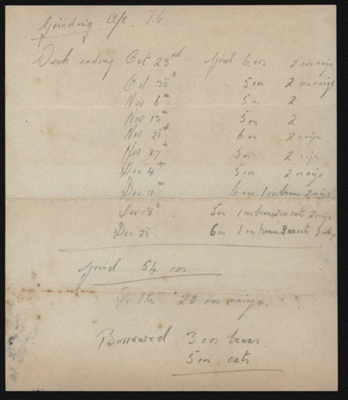 Grinding A/c. 76
Week ending Oct 23rd Grind 6 cos 2 cos maize
Oct 30th 5 cos 2 cos maize
Nov 6th 5 cos 2
Nov 13th 5 cos 2
Nov 20th 6 cos 2 maize
Nov 27th 5 cos 2 maize
Dec 4th 5 cos 2 maize
Dec 11th 6 cos 1 cos beans 2 maize
Dec 18th 5 cos 1 cos beans 2 cos oats 2 maize
Dec 25 6 cos 1 cos beans 3 cos oats 2 maize
Grind 54 cos
20 cos maize.
Borrowed 3 cos beans
5 cos oats.